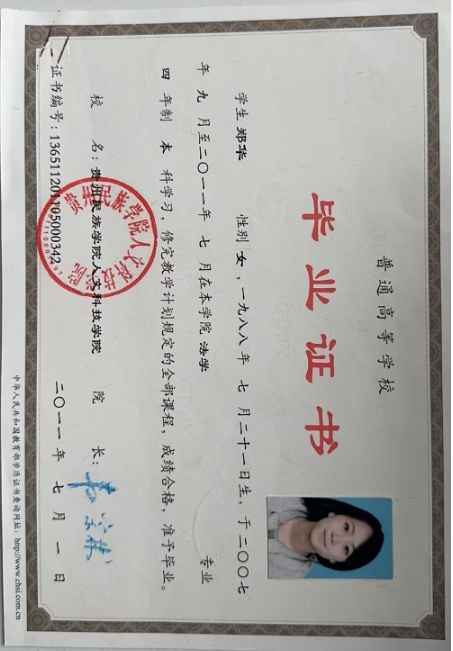 普通高等学校
毕业证书
学生 郑华 性别 女，一九八八年 七 月 二十一日生，于二〇〇七
年 九 月至二〇一一年 七 月在本学院 法学 专业
四 年制 本 科学习，修完教学计划规定的全部课程，成绩合格，准予毕业。
校 名：贵州民族学院人文科技学院 院 长：
证书编号：136511201105000342 二〇一一年 七 月 一 日
贵州民族学院人文科技学院
中华人民共和国教育部学历证书查询网址：http://www.chsi.com.cn